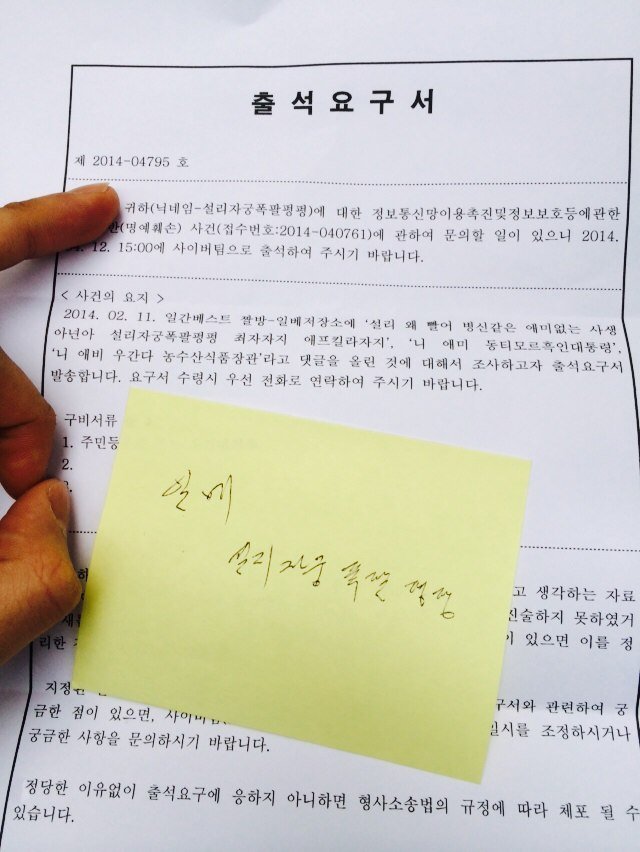 출석요구서
제 2014-04795 호
귀하(닉네임-설리자궁폭팔평평)에 대한 정보통신망이용촉진및정보보호등에관한
(명예훼손) 사건(접수번호:2014-040761)에 관하여 문의할 일이 있으니 2014.
12. 15:00에 사이버팀으로 출석하여 주시기 바랍니다.
< 사건의 요지 >
2014. 02. 11. 일간베스트 짤방-일베저장소에 '설리 왜 빨어 빙신같은 애미없는 사생
아년아 설리자궁폭팔평평 최자자지 애프킬라자지', '니 애미 동티모르흑인대통령',
'니 애비 우간다 농수산식품장관'라고 댓글을 올린 것에 대해서 조사하고자 출석요구서
발송합니다. 요구서 수령시 우선 전화로 연락하여 주시기 바랍니다.
구비서류
1. 주민등
2.
일베
설리자궁폭팔평평
고 생각하는 자료
진술하지 못하였거
리한 이 있으면 이를 정
구서와 관련하여 궁
금한 점이 있으면, 일시를 조정하시거나
궁금한 사항을 문의하시기 바랍니다.
정당한 이유없이 출석요구에 응하지 아니하면 형사소송법의 규정에 따라 체포 될 수
있습니다.